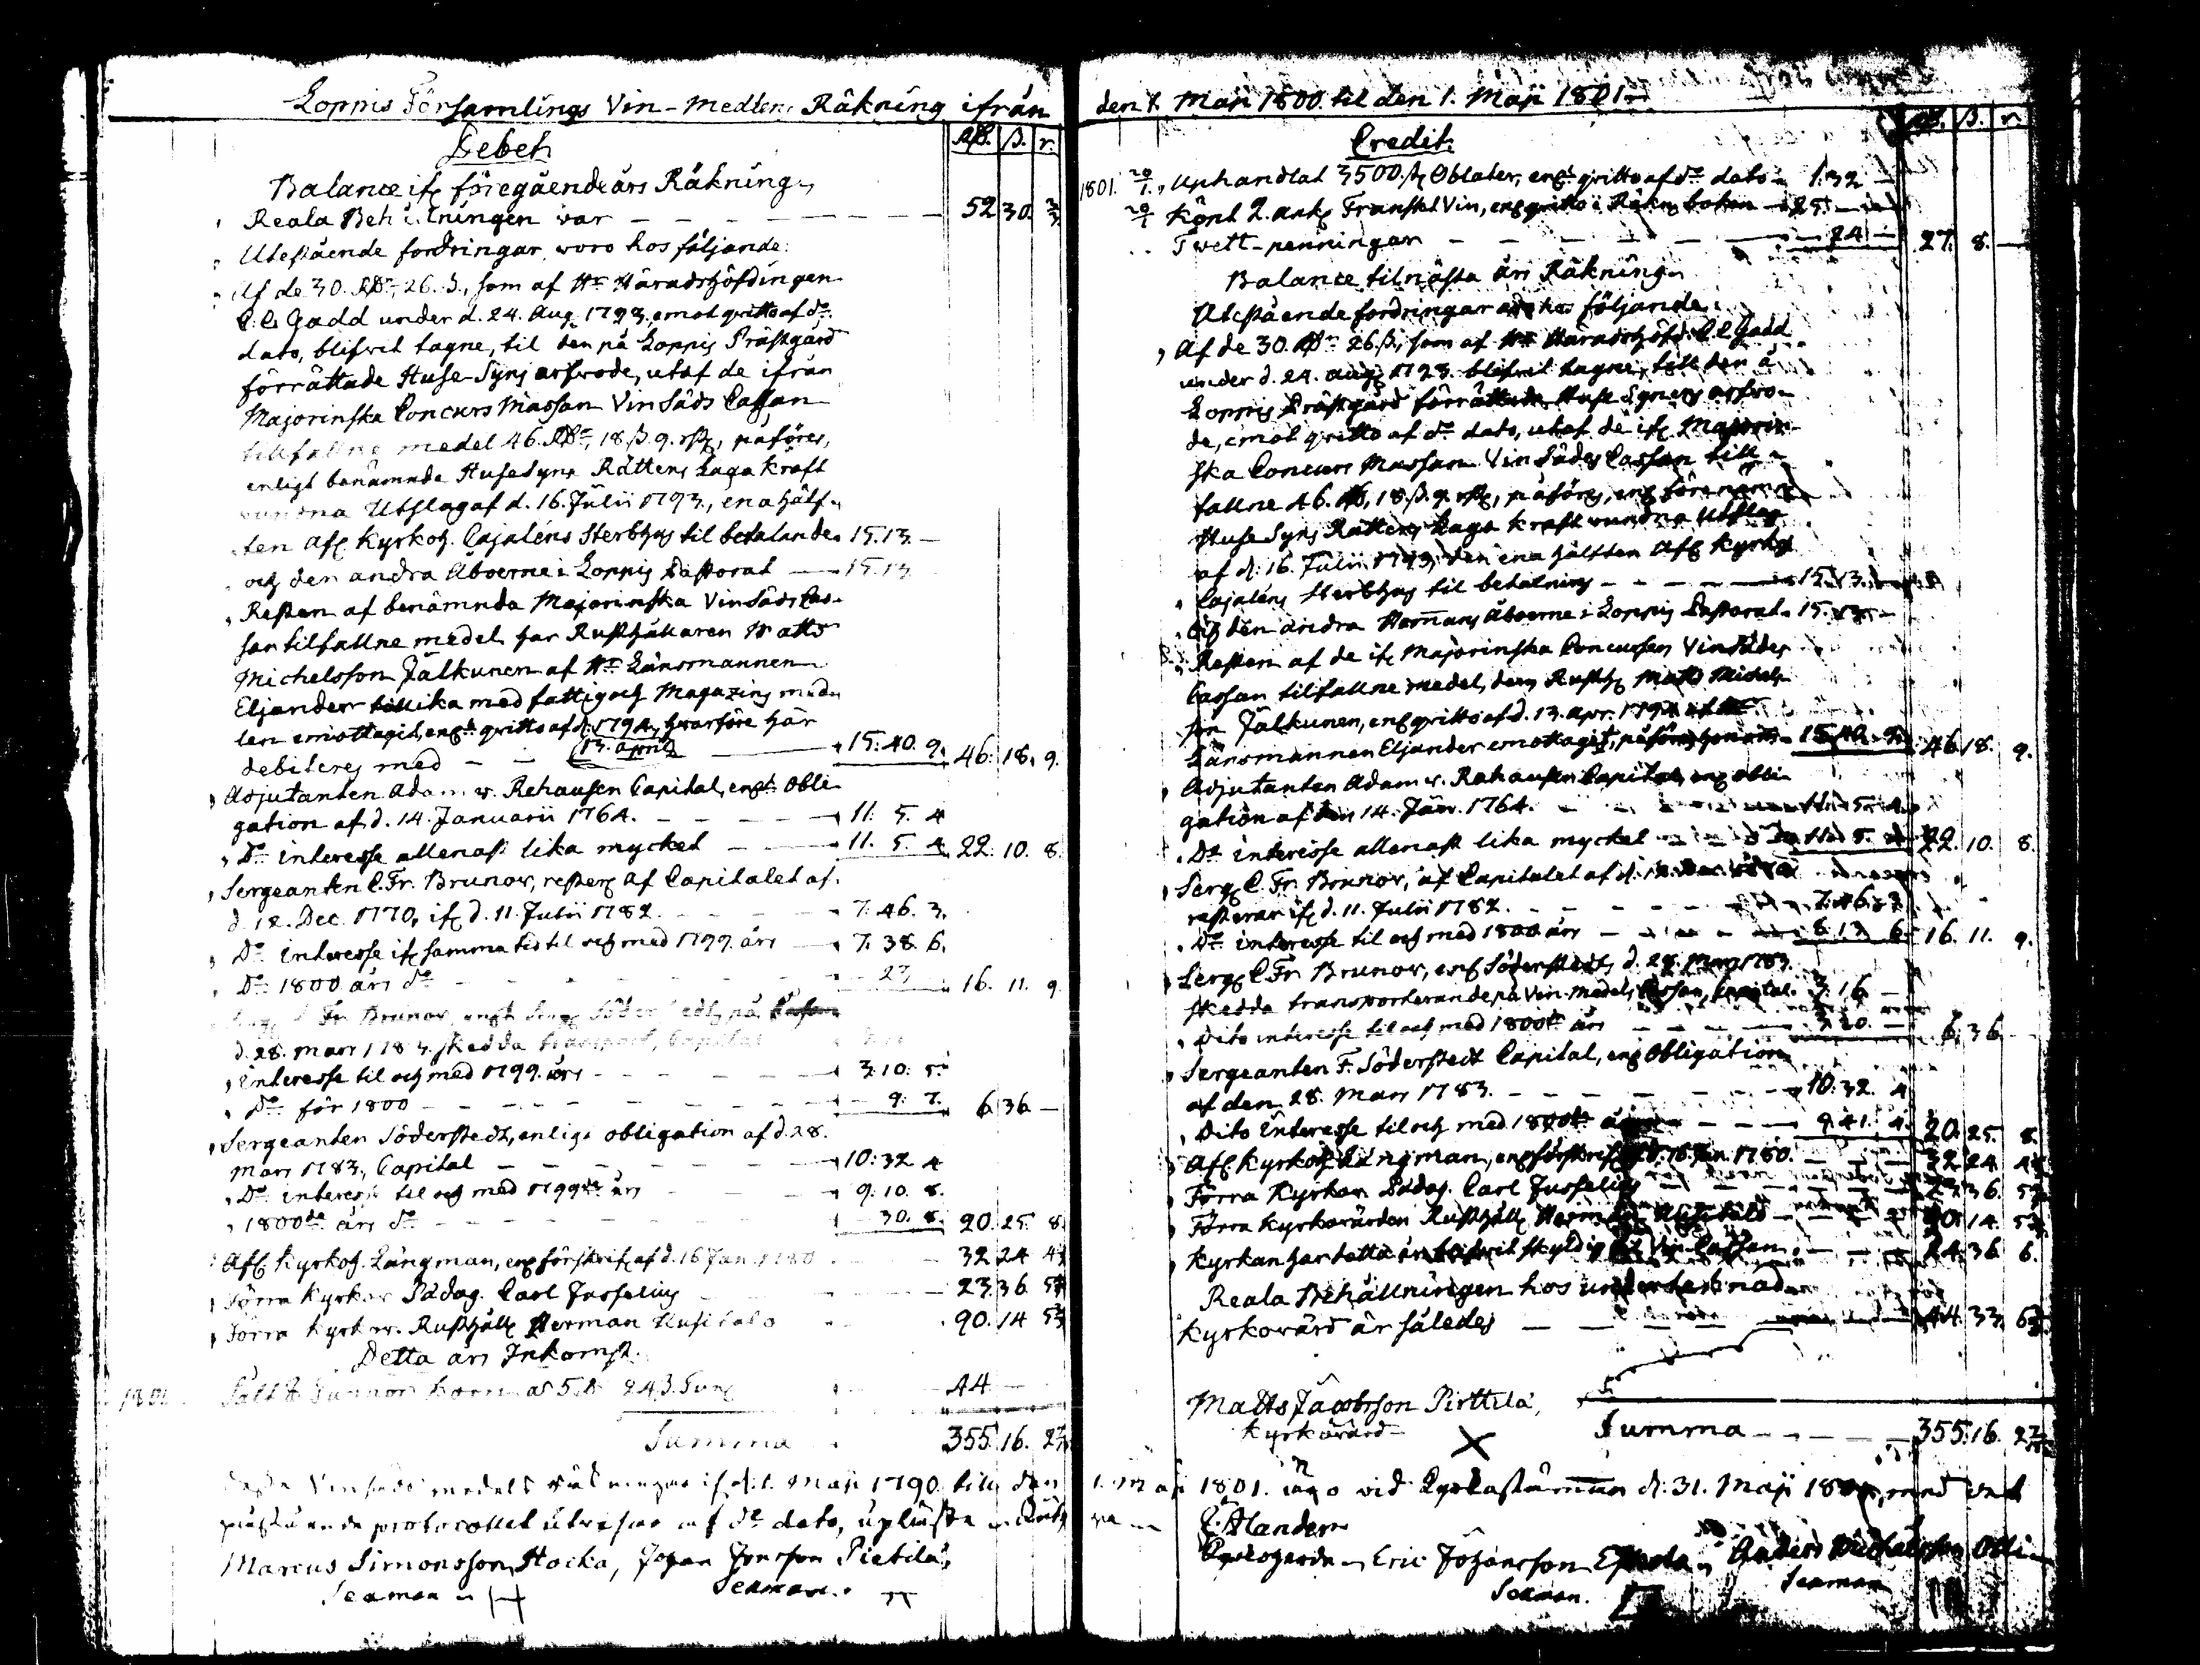 Loppis Församlings Vin-Medlens Räkning ifrån den 1. Maji 1800. til den 1. Maji 1801.
Debet
Rdr. ß. r.
Balance if: föregående års Räkning,
Reala Behållningen var — 52 30.
Utestående fordringar woro hos följande:
Af de 30. Rdr. 26. ß., som af Hr Häradshöfdingen
C. C. Gadd under d. 24. Aug. 1793. emot qvitto af do
dato, blifvit tagne, til den på Loppis Prästgård
förrättade Huse-Syns arfvode, utaf de ifrån
Majorinska Concurs Massan Vin Säds Cassan
tillfallne medel 46. Rdr, 18 ß. 9. rst, påföres,
enligt benämnde HuseSyns Rättens Laga kraft
vundna Utslag af d. 16. Julii 1793., ena hälf-
ten Afl. Kyrkoh. Cajaléns Sterbhus til betalande 15.13. —
och den andra Åboerne i Loppis Pastorat — 15.13
Resten af benämnda Majorinska VinSäds Cas-
san tilfallne medel har Rusthållaren Matts
Michelsson Jälkunen af Hr Länsmannen
Eljander tillika med fattig och Magazins med-
len emottagit, engt qvitto af d. 1794, hvarföre här
13. April
debiteres med — 15. 40. 9. 46. 18. 9.
Adjutanten Adam v. Rehausen Capital, engt Obli-
gation af d. 14. Januarii 1764. — 11. 5. 4
Do interesse allenast lika mycket — 11. 5. 4. 22. 10. 8.
Sergeanten C. Fr. Brunow, rester af Capitalet af
d. 12. Dec. 1770, if: d. 11. Julii 1782. — 7. 46. 3.
Do interesse if: samma tid til och med 1799. års — 7. 38. 6.
Do 1800 års do — 23 16. 11. 9
Fr. Brunow, engt Serg: Söderstedts på
d. 28. Mars 1783. skedda transport, Capital
interesse til och med 1799. års — 3. 10. 5.
Do för 1800 — 9. 7. 6 36 —
Sergeanten Söderstedt, enligt obligation af d. 28.
Mars 1783., Capital — 10: 32 4
Do interesse til och med 1799de års — 9. 10. 8.
1800de års do — 30. 8. 20. 25. 8.
Afl. Kyrkoh. Långman, eng förskrif: af d. 16 Jan. 1780 — 32 24
Förra Kyrkov. Pädag. Carl Jusselius — 23 36
Förra Kyrkov. Rusthåll. Herman Husitalo — 90. 14
Detta års Inkomst.
1801. — 44 —
Summa 355. 16.
Credit
Rdr. ß. r.
1801. Uphandlat 3500. st. Oblater, engt qvitto af do dato 1. 32 —
Köpt 2. ank. Franskt Vin, eng qvitto i Räkn. boken 25. —
Twett-penningar — 24 — 27. 8. —
Balance til nästa års Räkning.
Utestående fordringar hos följande:
Af de 30. Rdr 26. ß, som af Hr Häradshöfd. C C Gadd
under d. 24. Aug. 1793 blifvit tagne, till den å
Loppis Prästgård förrättade Huse Synens arfvo-
de, emot qvitto af do dato, utaf de if: Majorin-
ska Concurs Massan Vin Sädes Cassan till-
fallne 46. Rdr, 18. ß. 9. rst, påföres, eng förenämnde
Huse Syns Rättens Laga kraft vundna Utslag
af d. 16. Julii 1793, den ena hälften Afl. Kyrkoh.
Cajaléns Sterbhus til betalning — 15. 13.
Och den andra Hemmans Åboerne i Loppis Pastorat. 15. 13. —
Resten af de if: Majorinska Concursen VinSädes
Cassan tilfallne medel, dem Rusth. Matts Michels-
son Jälkunen, eng qvitto af d. 13. Apr. 1794 af
Länsmannen Eljander emottagit, påföres 15. 40. 9. 46. 18. 9.
Adjutanten Adam v. Rehausen Capital, eng obli-
gation af den 14. Janr. 1764. — 11. 5. 4.
Do interesse allenast lika mycket — 11. 5. 4 22. 10. 8.
Serg: C. Fr. Brunow, af Capitalet af d. 12. Dec. 1770
resterar if: d. 11. Julii 1782. — 7. 46. 3
Do interesse til och med 1800 års — 8. 13. 6. 16. 11. 9.
Serg: C. Fr. Brunow, eng Söderstedts d. 28. Mars 1783.
skedda transporterande på Vin-Medels Cassan, Capital. 3. 16 —
Dito interesse til och med 1800de års — 3. 20. — 6. 36
Sergeanten F. Söderstedt Capital, eng Obligation
af den 28. Mars 1783. — 10. 32. 4
Dito interesse til och med 1800de års — 9. 41. 4. 20. 25. 8.
Afl. Kyrkoh. Långman, eng förskrif: af d. 16 Jan. 1780. — 32 24
Förra Kyrkov. Pädag. Carl Jusselius — 23. 36.
Förra Kyrkovärden Rusthåll. Herman Husitalo — 90. 14.
Kyrkan har detta år blifvit skyldig til Vin Cassan — 24. 36 6.
Reala Behållningen hos undertecknad
Kyrkovärd är således — 44. 33.
Matts Jacobsson Pirttilä,
Kyrkovärd X
Summa — 355. 16.
Vinsäds medels räkningar if. d. 1. Maji 1790. til den 1. Maji 1801. vid Kyrkostämman d. 31. Maji
protocollet utvisar af do dato, uplästa
E. Alander
Marcus Simonsson Hocka, Johan Jonsson Pietilä, Kyrkoherde Eric Johansson Anders Michelsson Olli
Sexman Sexman. Sexman. Sexman